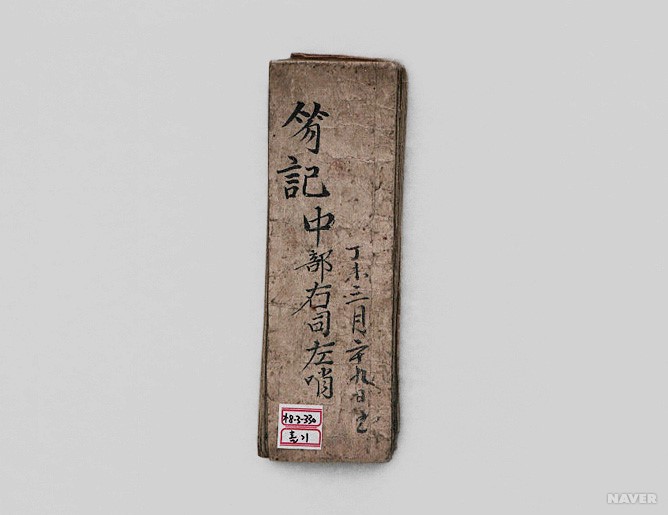 笏記中部右司左哨
丁未三月二十九日
48-3-330
홀기
NAVER